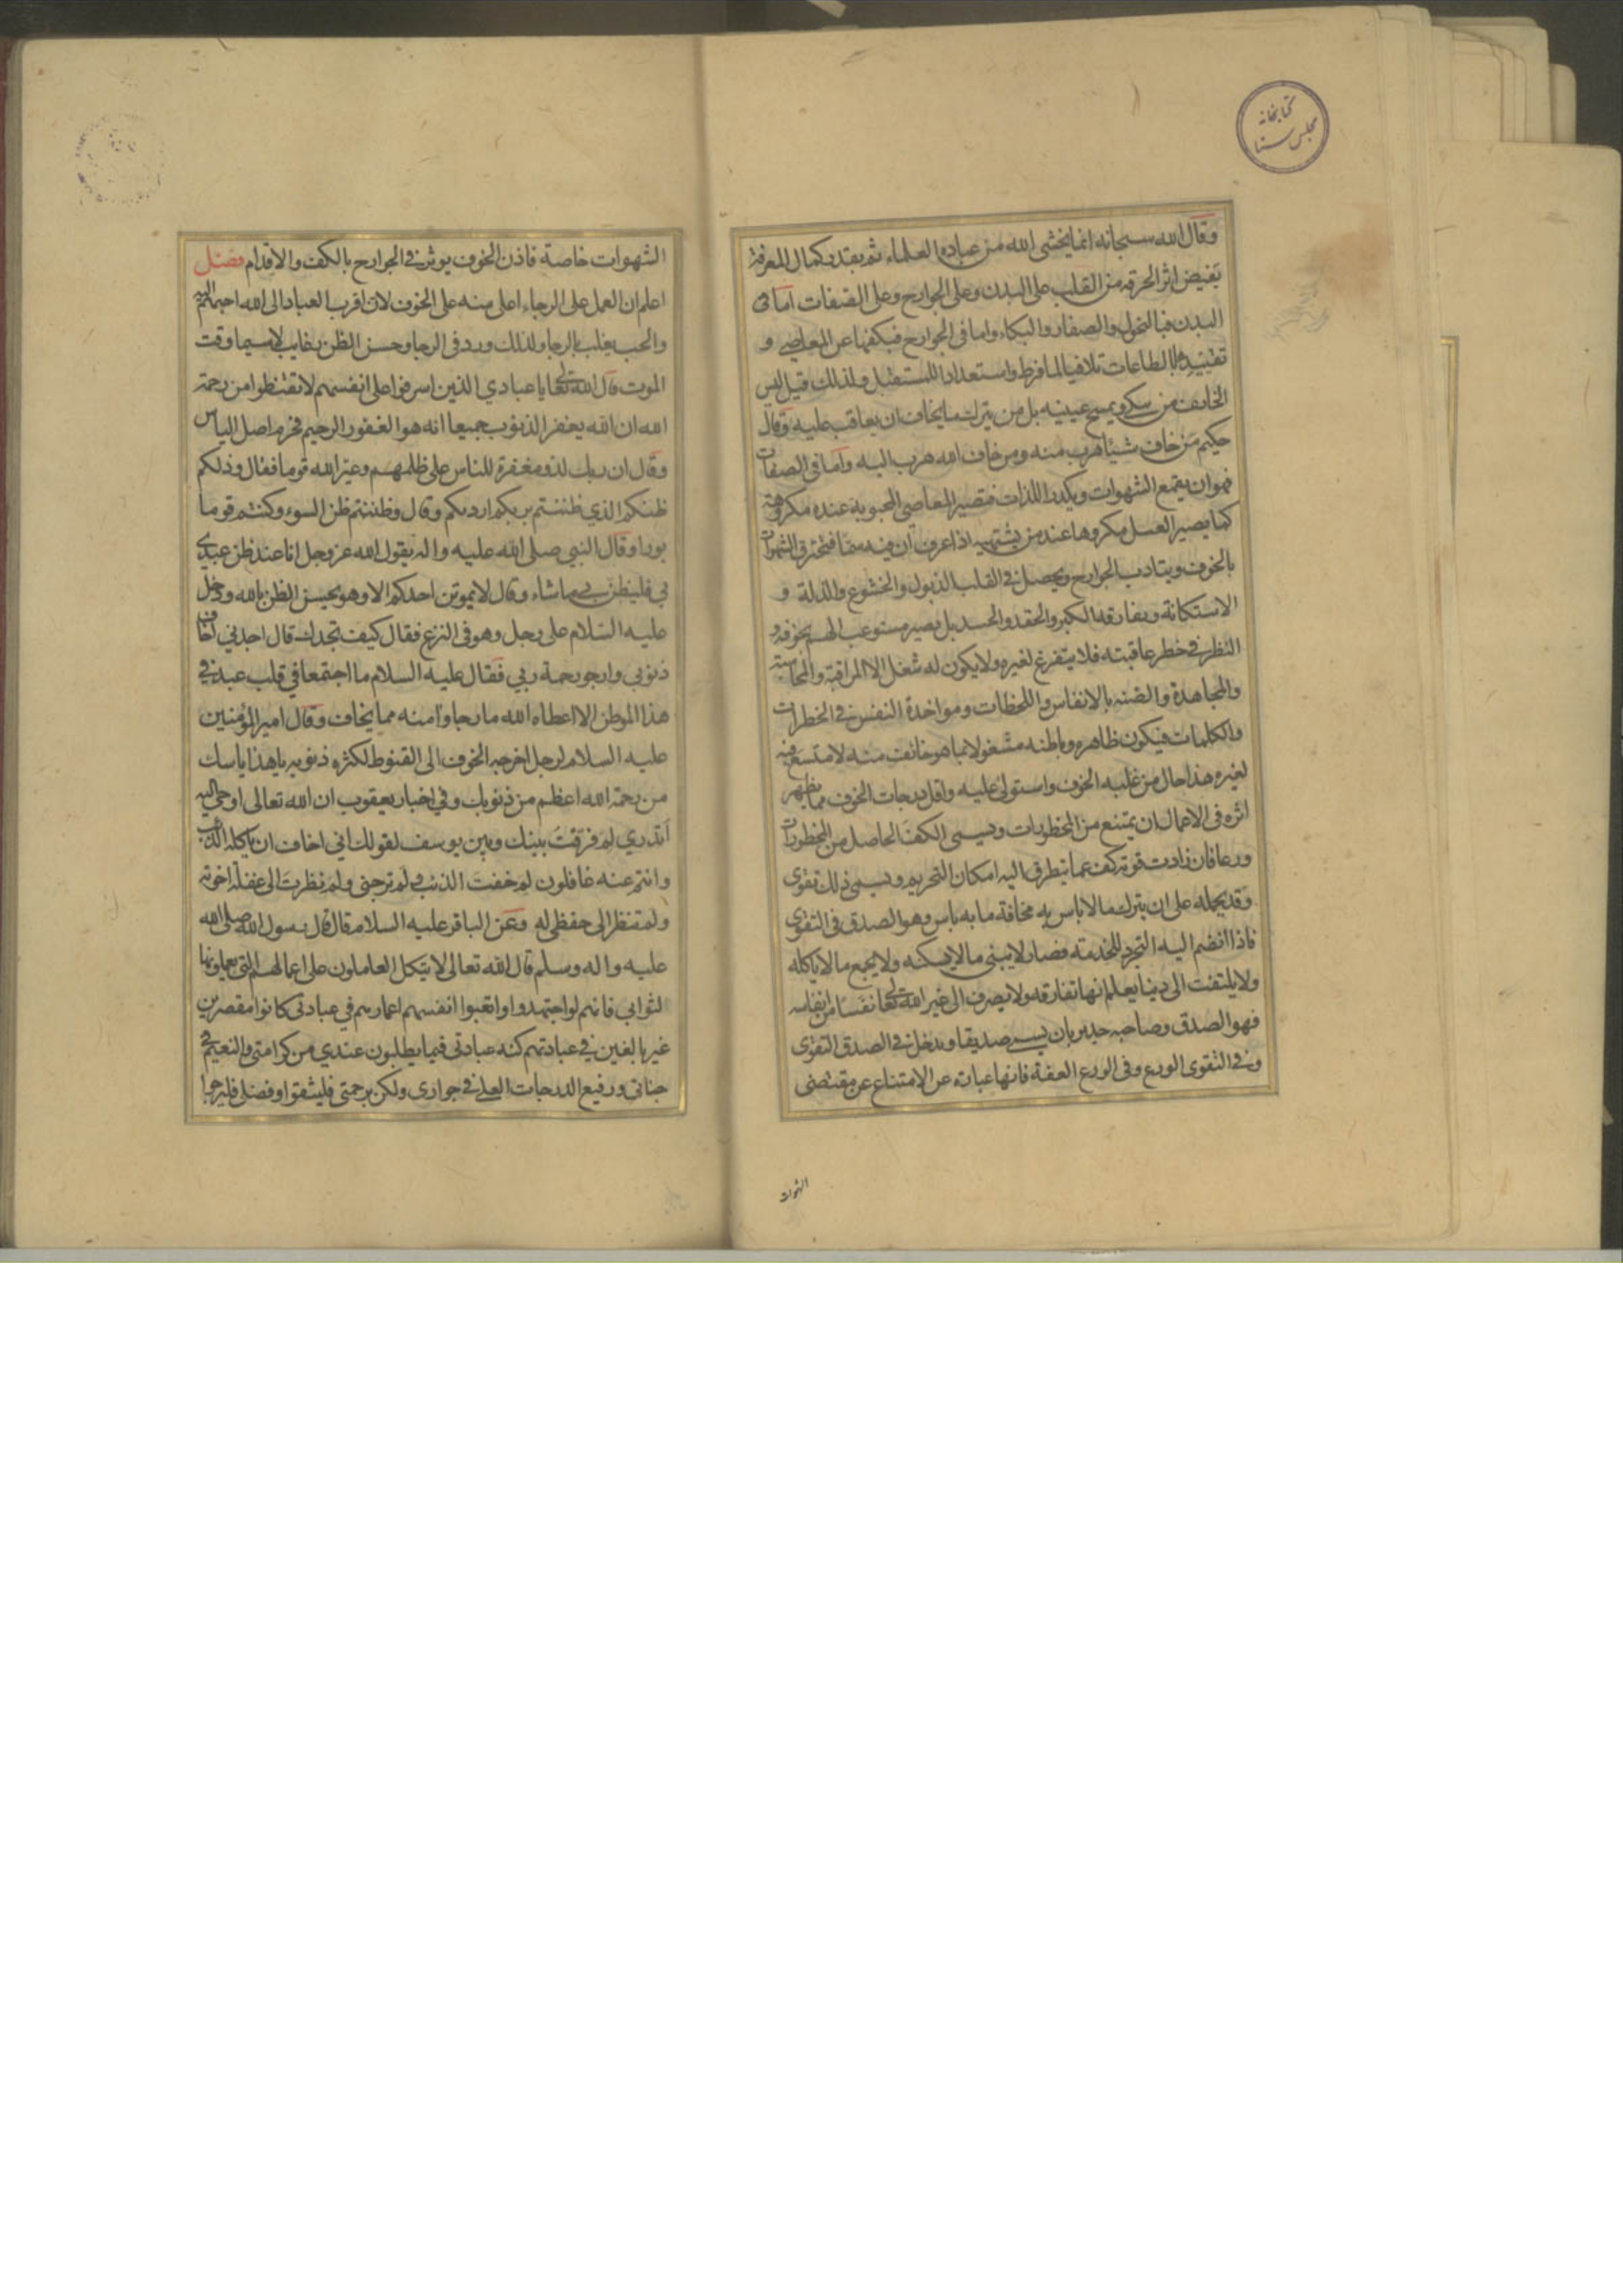 كتابخانه
مجلس سنا
وقال الله سبحانه انما يخشى الله من عباده العلماء ثم بقدر كمال المعرفة
يفيض اثر الحرقة من القلب على البدن وعلى الجوارح وعلى الصفات اما في
البدن فبالنحول والصفار والبكاء واما في الجوارح فبكفها عن المعاصي و
تقييدها بالطاعات تلافيا لما فرط واستعدادا للمستقبل ولذلك قيل ليس
الخائف من يبكي ويمسح عينيه بل من يترك ما يخاف ان يعاقب عليه وقال
حكيم من خاف شيئا هرب منه ومن خاف الله هرب اليه واما في الصفات
فهو ان يقمع الشهوات ويكدر اللذات فتصير المعاصي المحبوبة عنده مكروهة
كما يصير العسل مكروها عند من يشتهيه اذا عرف ان فيه سما فتحترق الشهوات
بالخوف ويتادب الجوارح ويحصل في القلب الذبول والخشوع والذلة و
الاستكانة ويفارقه الكبر والحقد والحسد بل يصير مستوعب الهم بخوفه و
النظر في خطر عاقبته فلا يتفرغ لغيره ولا يكون له شغل الا المراقبة والمحاسبة
والمجاهدة والضنه بالانفاس واللحظات ومواخذة النفس في الخطرات
والكلمات فيكون ظاهره وباطنه مشغولا بما هو خائف منه لا متسع فيه
لغيره هذا حال من غلبه الخوف واستولى عليه واقل درجات الخوف مما يظهر
اثره في الاعمال ان يمتنع من المحظورات ويسمى الكف الحاصل من المحظورات
ورعا فان زادت قوته كف عما يتطرق اليه امكان التحريم ويسمى ذلك تقوى
وقد يحمله على ان يترك ما لا باس به مخافة ما به باس وهو الصدق في التقوى
فاذا انضم اليه التجرد للخدمة فصار لا يبنى ما لا يسكنه ولا يجمع ما لا ياكله
ولا يلتفت الى دنيا يعلم انها تفارقه ولا يصرف الى غير الله تعالى نفسا من انفاسه
فهو الصدق وصاحبه جدير بان يسمى صديقا ويدخل في الصدق التقوى
وفي التقوى الورع وفي الورع العفة فانها عبارة عن الامتناع عن مقتضى
الشهوات
الشهوات خاصة فاذن الخوف يوثر في الجوارح بالكف والاقدام فصل
اعلم ان العمل على الرجاء اعلى منه على الخوف لان اقرب العباد الى الله احبهم اليه
والحب يغلب بالرجا ولذلك ورد في الرجا وحسن الظن رغايب لا سيما وقت
الموت قال الله تعالى يا عبادي الذين اسرفوا على انفسهم لا تقنطوا من رحمة
الله ان الله يغفر الذنوب جميعا انه هو الغفور الرحيم فحرم اصل الياس
وقال ان ربك لذو مغفرة للناس على ظلمهم وعير الله قوما فقال وذلكم
ظنكم الذي ظننتم بربكم ارديكم وقال وظننتم ظن السوء وكنتم قوما
بورا وقال النبي صلى الله عليه واله يقول الله عز وجل انا عند ظن عبدي
بي فليظن بي ما شاء وقال لا يموتن احدكم الا وهو يحسن الظن بالله ودخل
عليه السلام على رجل وهو في النزع فقال كيف تجدك قال اجدني اخاف
ذنوبي وارجو رحمة ربي فقال عليه السلام ما اجتمعا في قلب عبد في
هذا الموطن الا اعطاه الله ما رجا وامنه مما يخاف وقال امير المؤمنين
عليه السلام لرجل اخرجه الخوف الى القنوط لكثرة ذنوبه يا هذا ياسك
من رحمة الله اعظم من ذنوبك وفي اخبار يعقوب ان الله تعالى اوحى اليه
أتدري لم فرقت بينك وبين يوسف لقولك اني اخاف ان ياكله الذئب
وانتم عنه غافلون لم خفت الذئب ولم ترجني ولم نظرت الى غفلة اخوته
ولم تنظر الى حفظي له وعن الباقر عليه السلام قال قال رسول الله صلى الله
عليه واله وسلم قال الله تعالى لا يتكل العاملون على اعمالهم التي يعملونها
لثوابي فانهم لو اجتهدوا واتعبوا انفسهم اعمارهم في عبادتي كانوا مقصرين
غير بالغين في عبادتهم كنه عبادتي فيما يطلبون عندي من كرامتي والنعيم في
جناتي ورفيع الدرجات العلى في جواري ولكن برحمتي فليثقوا وفضلي فليرجوا